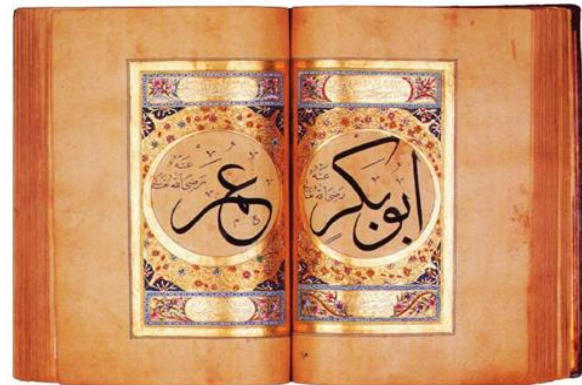 ابوبكرٍ
رضى الله عنه
عمر
رضى الله عنه